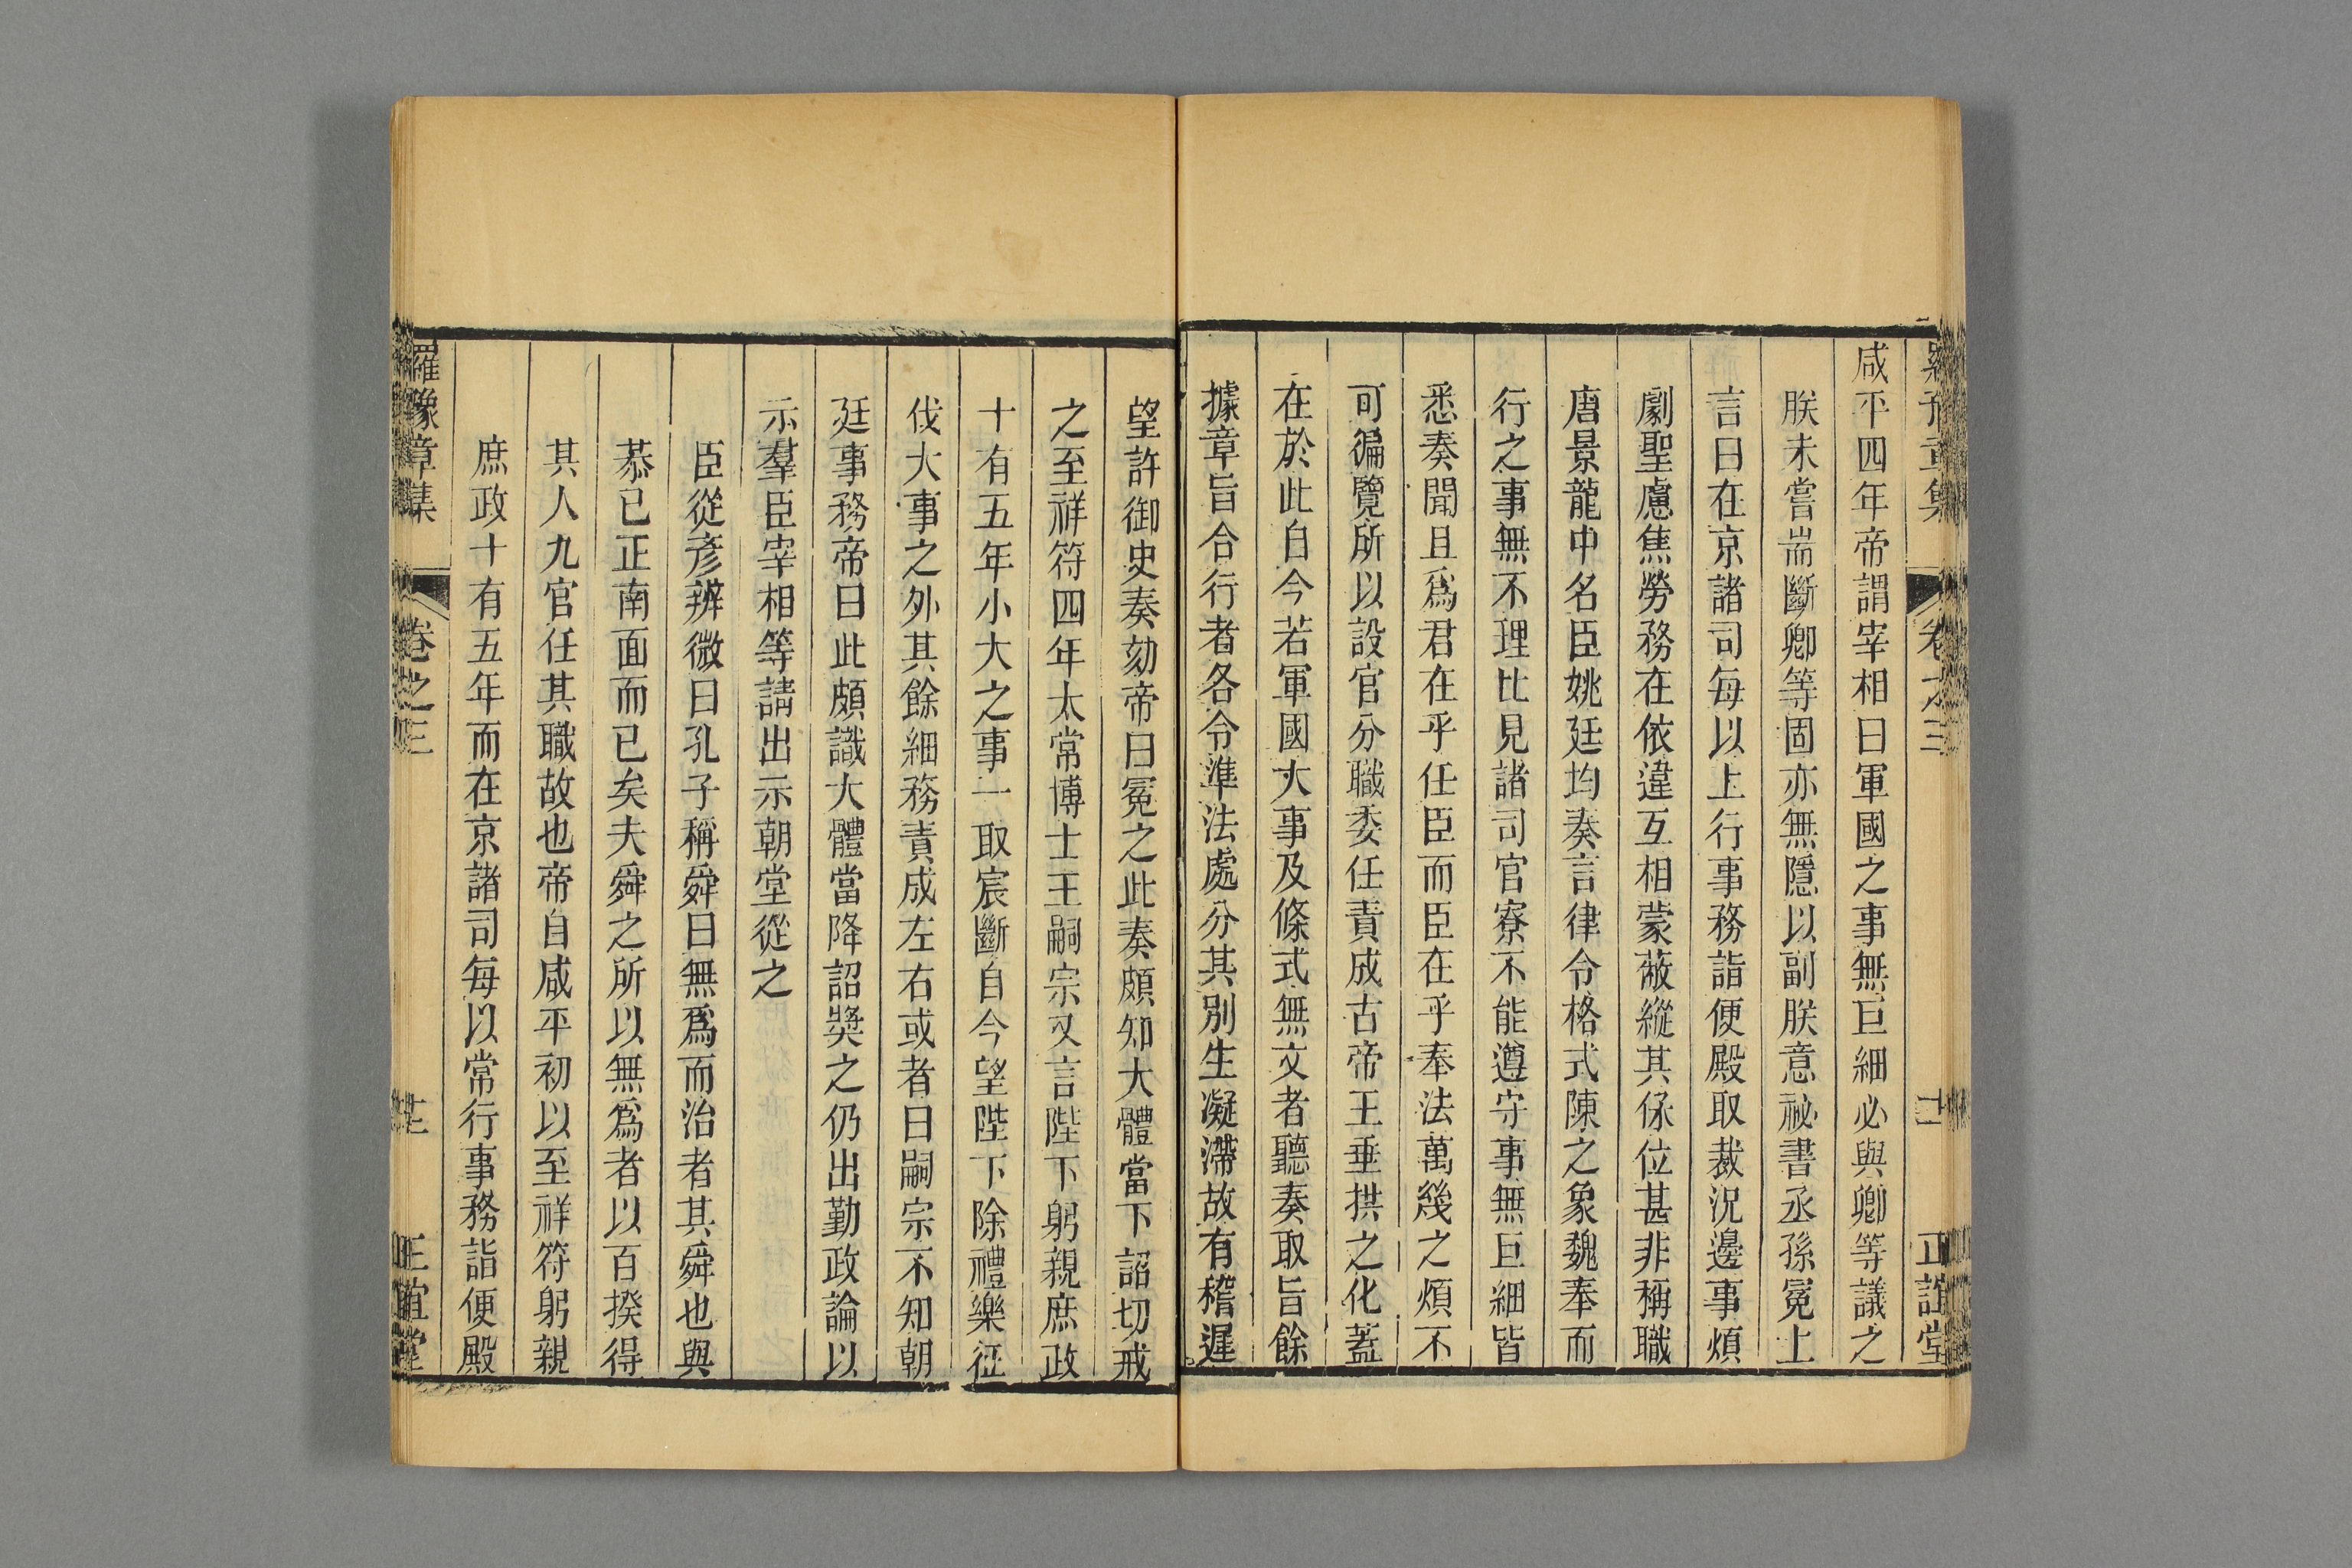 咸平四年帝謂宰相曰軍國之事無巨細必與卿等議之
朕未嘗耑斷卿等固亦無隱以副朕意祕書丞孫冕上
言曰在京諸司每以上行事務詣便殿取裁況邊事煩
劇聖慮焦勞務在依違互相蒙蔽縱其係位甚非稱職
唐景龍中名臣姚廷均奏言律令格式陳之象魏奉而
行之事無不理比見諸司官寮不能遵守事無巨細皆
悉奏聞且爲君在乎任臣而臣在乎奉法萬幾之煩不
可徧覽所以設官分職委任責成古帝王垂拱之化蓋
在於此自今若軍國大事及條式無文者聽奏取旨餘
據章旨合行者各令準法處分其別生凝滯故有稽遲
望許御史奏劾帝曰冕之此奏頗知大體當下詔切戒
之至祥符四年太常博士王嗣宗又言陛下躬親庶政
十有五年小大之事一取宸斷自今望陛下除禮樂征
伐大事之外其餘細務責成左右或者曰嗣宗不知朝
廷事務帝曰此頗識大體當降詔獎之仍出勤政論以
示羣臣宰相等請出示朝堂從之
臣從彥辨微曰孔子稱舜曰無爲而治者其舜也與
恭已正南面而已矣夫舜之所以無爲者以百揆得
其人九官任其職故也帝自咸平初以至祥符躬親
庶政十有五年而在京諸司每以常行事務詣便殿
羅豫章集 卷之三 正誼堂